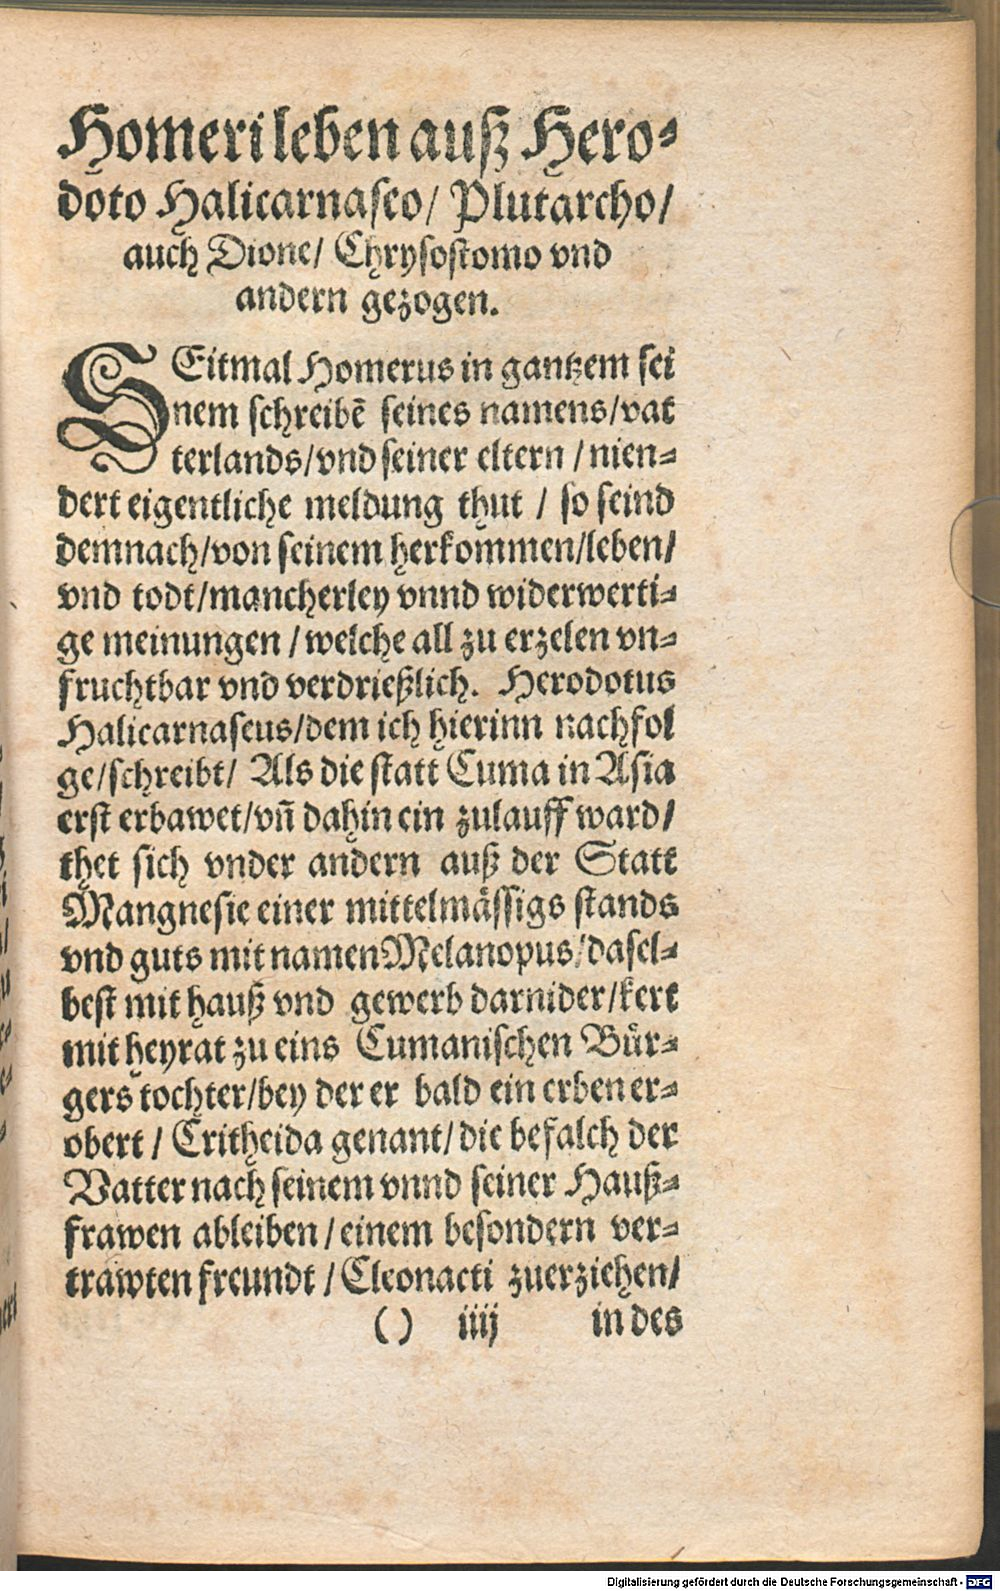 Homeri leben auß Hero⸗
doto Halicarnaseo/ Plutarcho/
auch Dione/ Chrysostomo vnd
andern gezogen.
SEitmal Homerus in gantzem sei
nem schreibẽ seines namens/vat
terlands/vnd seiner eltern / nien⸗
dert eigentliche meldung thut / so seind
demnach/von seinem herkommen/leben/
vnd todt/mancherley vnnd widerwerti⸗
ge meinungen / welche all zu erzelen vn⸗
fruchtbar vnd verdrießlich. Herodotus
Halicarnaseus/dem ich hierinn nachfol
ge/schreibt/ Als die statt Cuma in Asia
erst erbawet/vñ dahin ein zulauff ward/
thet sich vnder andern auß der Statt
Mangnesie einer mittelmässigs stands
vnd guts mit namen Melanopus/dasel⸗
best mit hauß vnd gewerb darnider/kert
mit heyrat zu eins Cumanischen Bür⸗
gers tochter/bey der er bald ein erben er⸗
obert / Critheida genant/die befalch der
Vatter nach seinem vnnd seiner Hauß⸗
frawen ableiben / einem besondern ver⸗
trawten freundt / Cleonacti zuerziehen/
( ) iiij in des
Digitalisierung gefördert durch die Deutsche Forschungsgemeinschaft - DFG